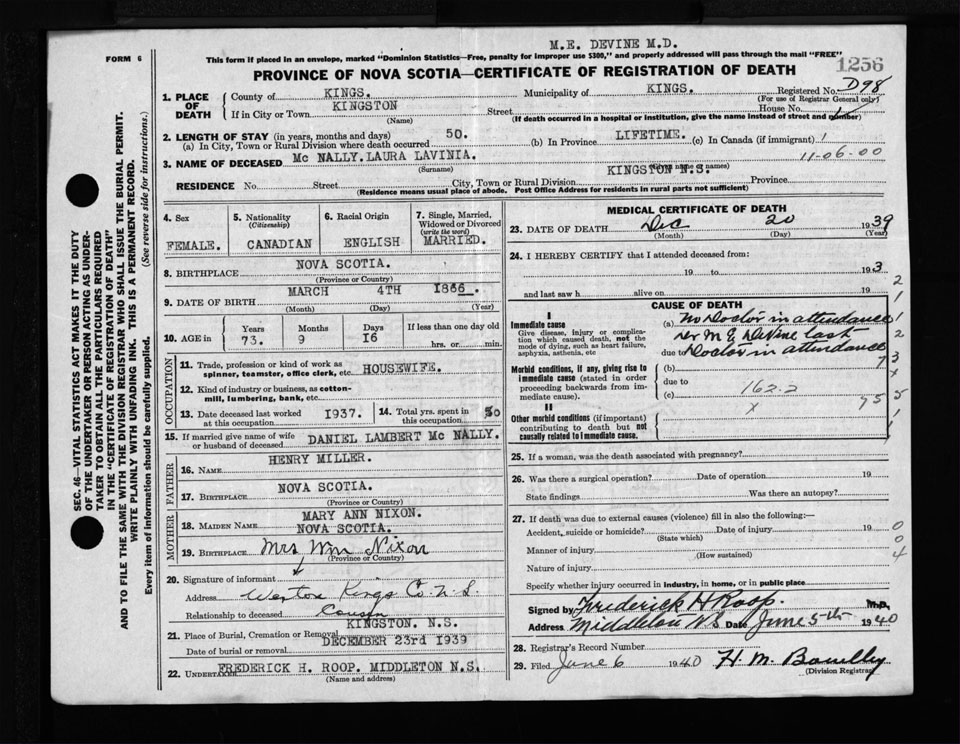 M.E. DEVINE M.D.
FORM 6
This form if placed in an envelope, marked "Dominion Statistics—Free, penalty for improper use $300," and properly addressed will pass through the mail "FREE"
1256
PROVINCE OF NOVA SCOTIA—CERTIFICATE OF REGISTRATION OF DEATH
1. PLACE OF DEATH
County of KINGS. Municipality of KINGS. Registered No. D98
(For use of Registrar General only)
If in City or Town KINGSTON Street House No.
(Name) (If death occurred in a hospital or institution, give the name instead of street and number)
2. LENGTH OF STAY (in years, months and days)
(a) In City, Town or Rural Division where death occurred 50. (b) In Province LIFETIME. (c) In Canada (if immigrant)
11-06-00
3. NAME OF DECEASED Mc NALLY. LAURA LAVINIA.
(Surname)
KINGSTON N.S.
RESIDENCE No. Street City, Town or Rural Division Province
(Residence means usual place of abode. Post Office Address for residents in rural parts not sufficient)
4. Sex FEMALE.
5. Nationality (Citizenship) CANADIAN
6. Racial Origin ENGLISH
7. Single, Married, Widowed or Divorced (write the word) MARRIED.
8. BIRTHPLACE NOVA SCOTIA.
(Province or Country)
9. DATE OF BIRTH MARCH 4TH 1866.
(Month) (Day) (Year)
10. AGE in Years Months Days If less than one day old
73. 9 16 hrs. or min.
OCCUPATION
11. Trade, profession or kind of work as spinner, teamster, office clerk, etc. HOUSEWIFE.
12. Kind of industry or business, as cotton-mill, lumbering, bank, etc.
13. Date deceased last worked at this occupation 1937.
14. Total yrs. spent in this occupation 50
15. If married give name of wife or husband of deceased DANIEL LAMBERT Mc NALLY.
FATHER
16. NAME HENRY MILLER.
17. BIRTHPLACE NOVA SCOTIA.
(Province or Country)
MOTHER
18. MAIDEN NAME MARY ANN NIXON.
NOVA SCOTIA.
19. BIRTHPLACE
(Province or Country)
Mrs Wm Nixon
20. Signature of informant
Address Weston Kings Co. N.S.
Relationship to deceased Cousin
21. Place of Burial, Cremation or Removal KINGSTON. N.S.
Date of burial or removal DECEMBER 23rd 1939
22. UNDERTAKER FREDERICK H. ROOP. MIDDLETON N.S.
(Name and address)
MEDICAL CERTIFICATE OF DEATH
23. DATE OF DEATH Dec 20 1939
(Month) (Day) (Year)
24. I HEREBY CERTIFY that I attended deceased from:
19 to 193
and last saw h alive on 19
CAUSE OF DEATH
I
Immediate cause
Give disease, injury or complication which caused death, not the mode of dying, such as heart failure, asphyxia, asthenia, etc
(a) No Doctor in attendance
Dr M E DeVine last
due to Doctor in attendance
Morbid conditions, if any, giving rise to immediate cause (stated in order proceeding backwards from immediate cause).
(b)
due to
(c) 162.2
x
II
Other morbid conditions (if important) contributing to death but not causally related to immediate cause.
25. If a woman, was the death associated with pregnancy?
26. Was there a surgical operation? Date of operation 19
State findings Was there an autopsy?
27. If death was due to external causes (violence) fill in also the following:—
Accident, suicide or homicide? Date of injury 19
(State which)
Manner of injury
(How sustained)
Nature of injury
Specify whether injury occurred in industry, in home, or in public place
Signed by Frederick H Roop M.D.
Address Middleton NS Date June 5th 1940
28. Registrar's Record Number
29. Filed June 6 1940
(Division Registrar)
SEC. 46—VITAL STATISTICS ACT MAKES IT THE DUTY
OF THE UNDERTAKER OR PERSON ACTING AS UNDER-
TAKER TO OBTAIN ALL THE PARTICULARS REQUIRED
IN THE "CERTIFICATE OF REGISTRATION OF DEATH"
AND TO FILE THE SAME WITH THE DIVISION REGISTRAR WHO SHALL ISSUE THE BURIAL PERMIT.
WRITE PLAINLY WITH UNFADING INK. THIS IS A PERMANENT RECORD.
Every item of information should be carefully supplied. (See reverse side for instructions.)